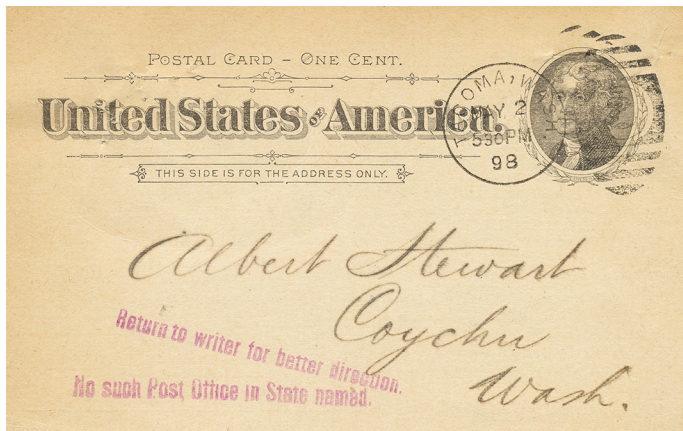 POSTAL CARD – ONE CENT.
United States of America.
THIS SIDE IS FOR THE ADDRESS ONLY.
TACOMA, W
MAY 2
530 PM
98
Albert Stewart
Coychu
Wash.
Return to writer for better direction.
No such Post Office in State named.